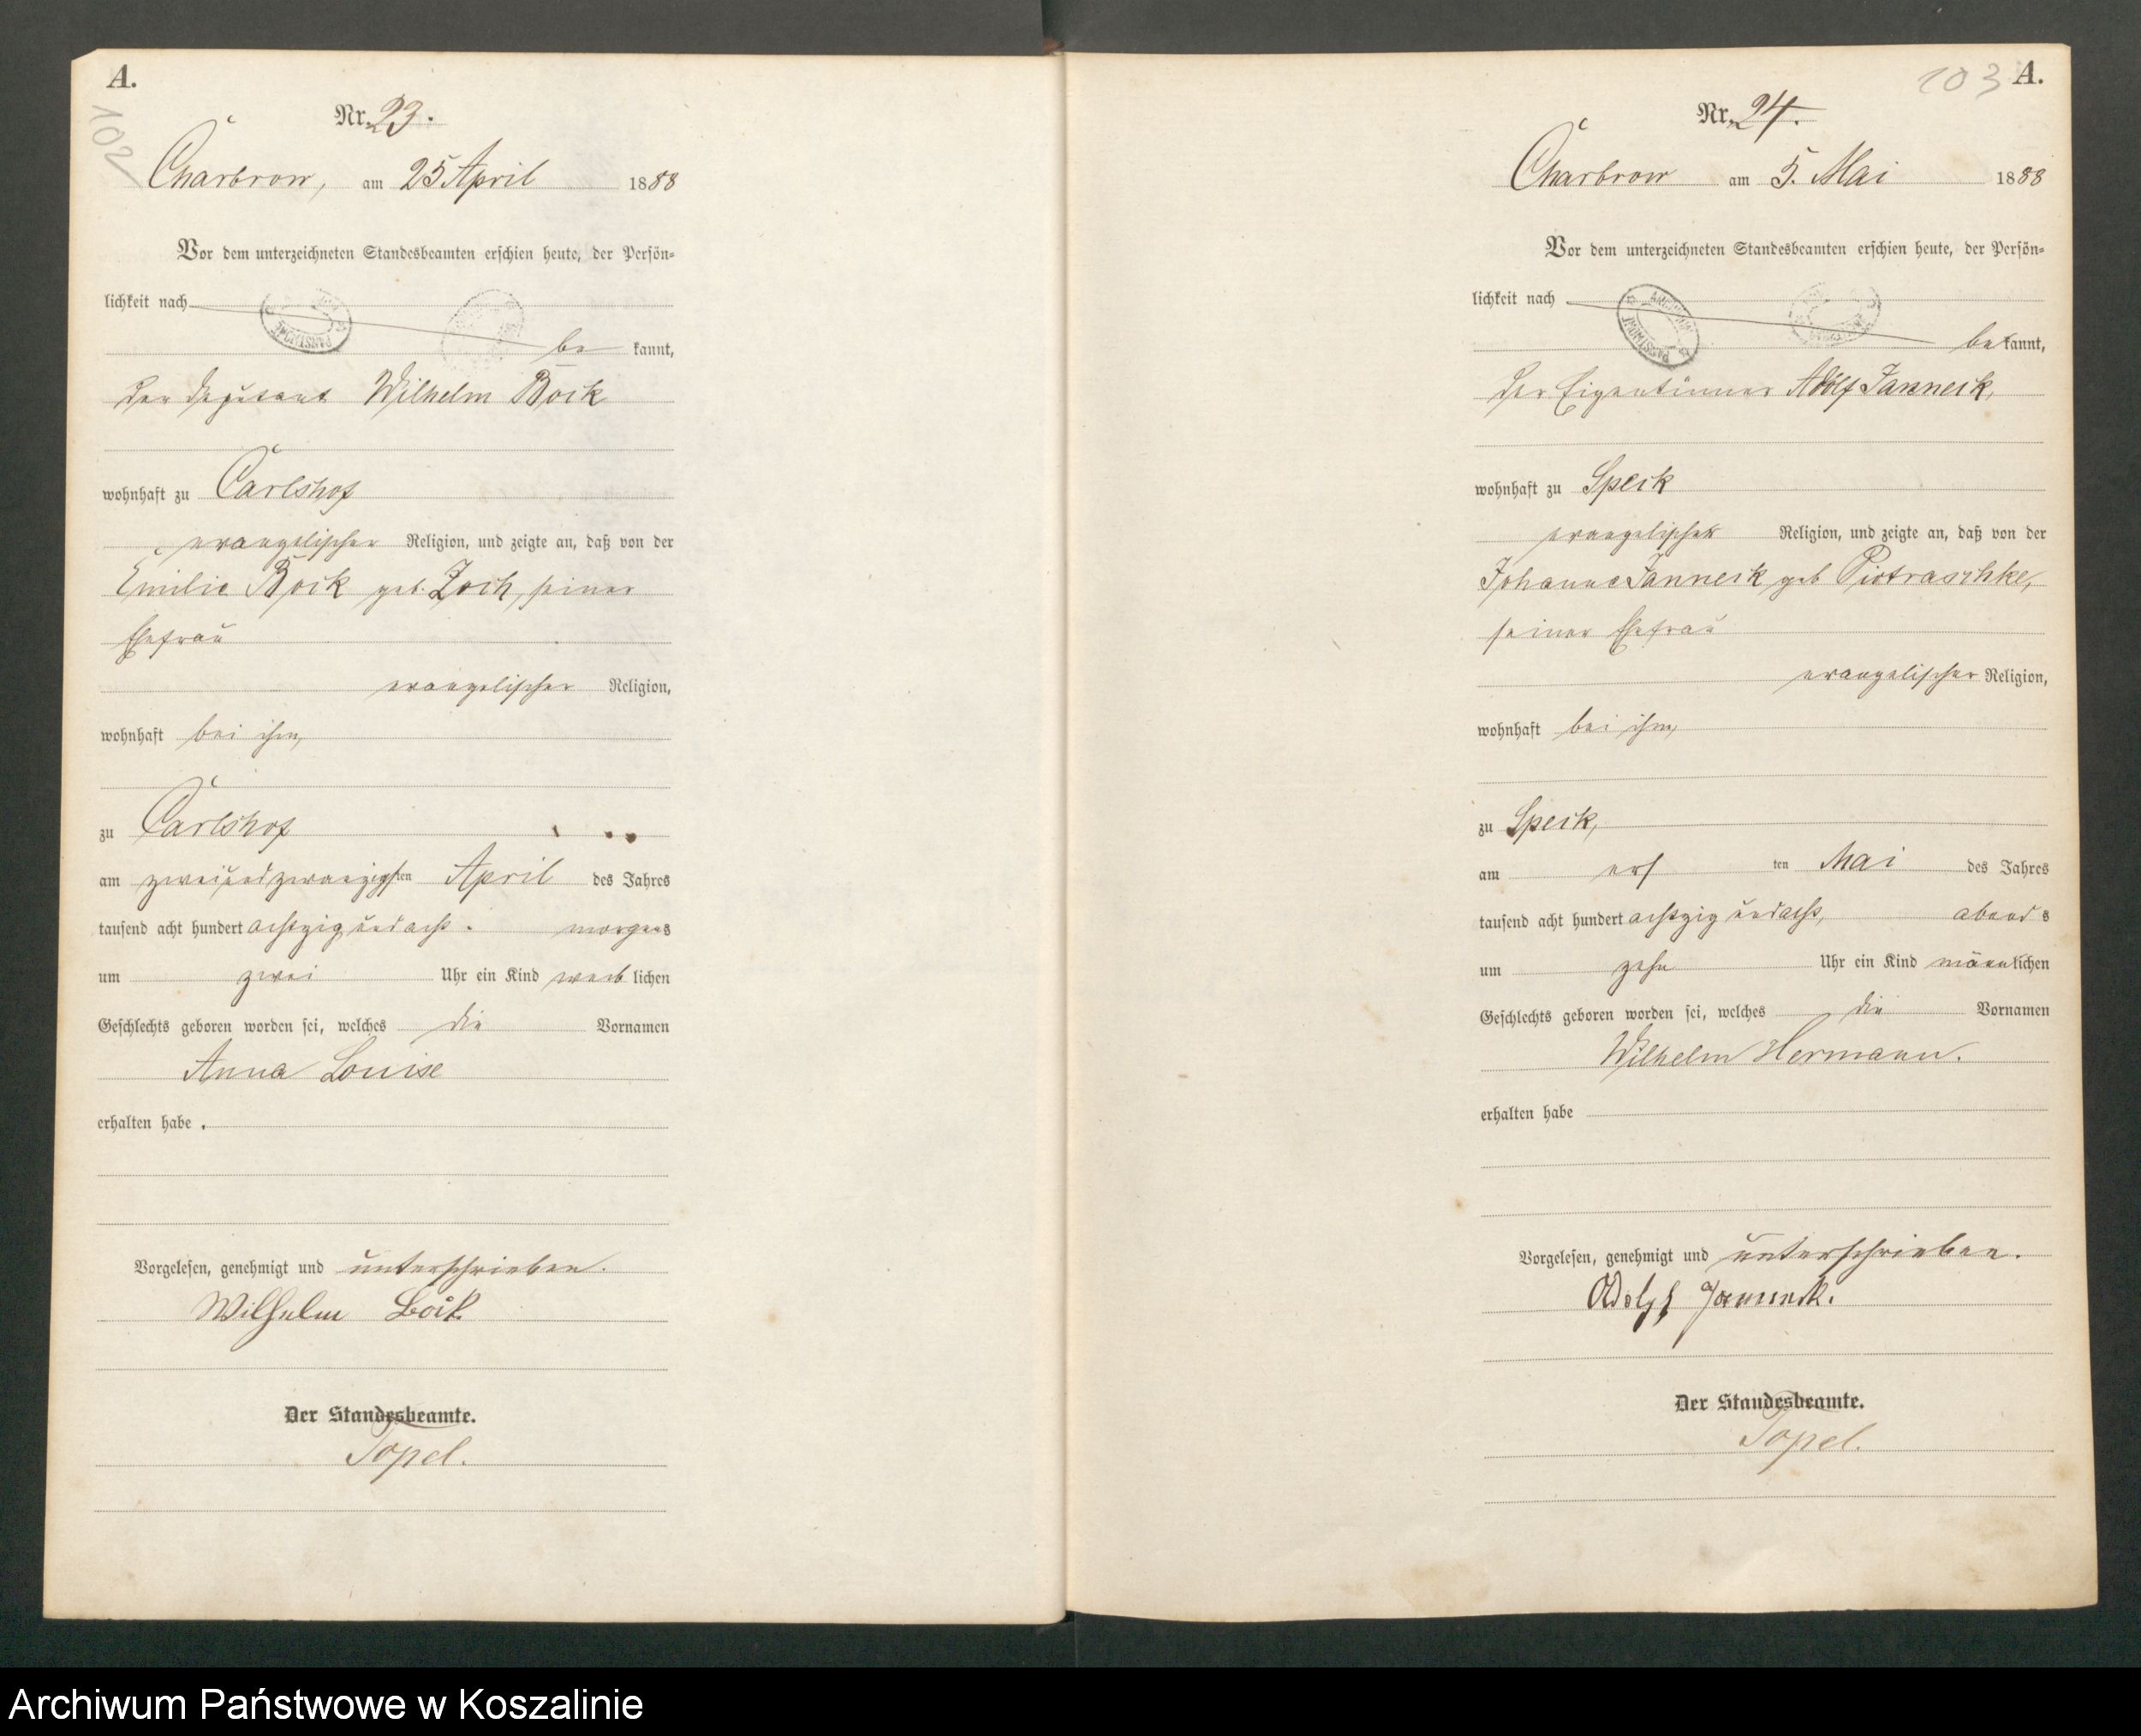 A.
102
Nr. 23.
Charbrow, am 25 April 1888
Vor dem unterzeichneten Standesbeamten erschien heute, der Persön-
lichkeit nach
be kannt,
der Deputant Wilhelm Bock
wohnhaft zu Carlshof
evangelischer Religion, und zeigte an, daß von der
Emilie Bock geb. Zoch, seiner
Ehefrau
evangelischer Religion,
wohnhaft bei ihm,
zu Carlshof
am zweiundzwanzigsten April des Jahres
tausend acht hundert achtzig und acht. morgens
um zwei Uhr ein Kind weiblichen
Geschlechts geboren worden sei, welches die Vornamen
Anna Louise
erhalten habe.
Vorgelesen, genehmigt und unterschrieben.
Wilhelm Bock
Der Standesbeamte.
Topel.
103 A.
Nr. 24.
Charbrow am 5. Mai 1888
Vor dem unterzeichneten Standesbeamten erschien heute, der Persön-
lichkeit nach
bekannt,
Der Eigentümer Adolf Janneck,
wohnhaft zu Speck
evangelischer Religion, und zeigte an, daß von der
Johanne Janneck geb Pietraschke,
seiner Ehefrau
evangelischer Religion,
wohnhaft bei ihm,
zu Speck,
am ersten Mai des Jahres
tausend acht hundert achtzig und acht, abends
um zehn Uhr ein Kind männlichen
Geschlechts geboren worden sei, welches die Vornamen
Wilhelm Hermann.
erhalten habe
Vorgelesen, genehmigt und unterschrieben.
Adolf Janneck.
Der Standesbeamte.
Topel.
Archiwum Państwowe w Koszalinie